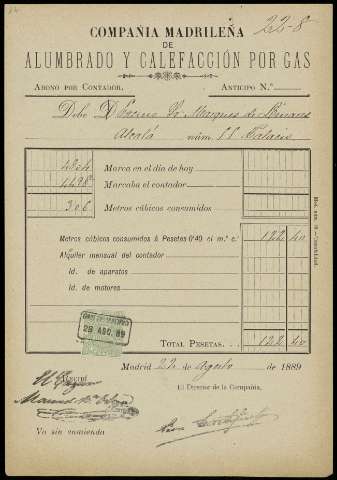 22-8
COMPAÑIA MADRILEÑA
DE
ALUMBRADO Y CALEFACCIÓN POR GAS
ABONO POR CONTADOR. ANTICIPO N.º
Debe D Excmo Sr. Marques de
Alcalá núm. 11 Palacio
Marca en el día de hoy
Marcaba el contador
306 Metros cúbicos consumidos
Metros cúbicos consumidos á Pesetas (0'40) el m.³ c.º 122 40
Alquiler mensual del contador
Id. de aparatos
Id. de motores
28 AGO. 89
TOTAL PESETAS. 122 40
Madrid 22 de Agosto de 1889
Recibí
El Director de la Compañía,
Va sin enmienda